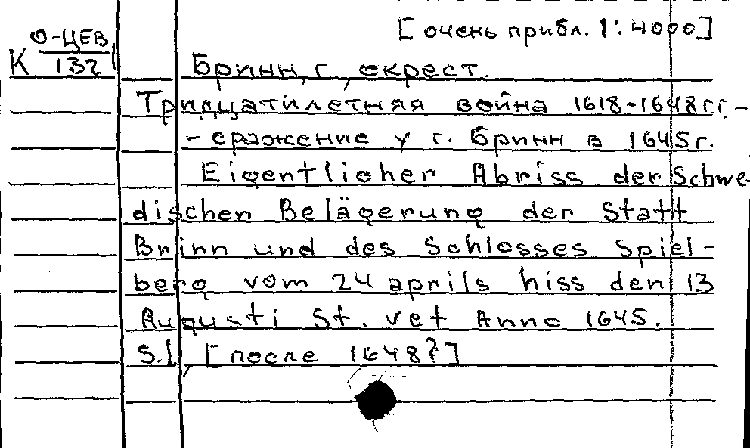 [очень прибл. 1:4000]
К О-ЦЕВ/132
Бринн, г., окрест.
Тридцатилетняя война 1618-1648гг.-
- сражение у г. Бринн в 1645г.
Eigentlicher Abriss der Schwe-
dischen Belägerung der Statt
Brinn und des Schlosses Spiel-
berg vom 24 aprils biss den 13
Augusti St. vet Anno 1645.
S.l [после 1648?]